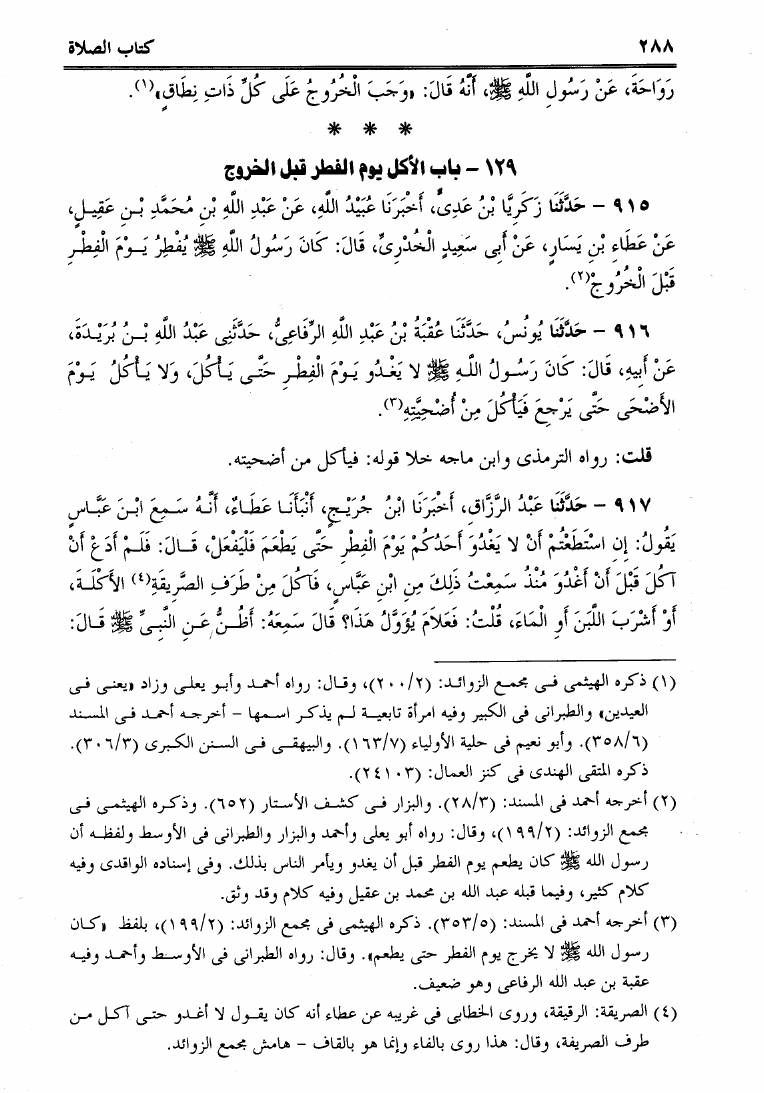 ٢٨٨ كتاب الصلاة
رَوَاحَةَ، عَنْ رَسُولِ اللَّهِ ﷺ، أَنَّهُ قَالَ: «وَجَبَ الْخُرُوجُ عَلَى كُلِّ ذَاتِ نِطَاقٍ»(١).
* * *
١٢٩ - باب الأكل يوم الفطر قبل الخروج
٩١٥ - حَدَّثَنَا زَكَرِيَّا بْنُ عَدِىٍّ، أَخْبَرَنَا عُبَيْدُ اللَّهِ، عَنْ عَبْدِ اللَّهِ بْنِ مُحَمَّدِ بْـنِ عَقِيـلٍ،
عَنْ عَطَاءِ بْنِ يَسَارٍ، عَنْ أَبِى سَعِيدٍ الْخُدْرِىِّ، قَالَ: كَانَ رَسُولُ اللَّهِ ﷺ يُفْطِرُ يَـوْمَ الْفِطْـرِ
قَبْلَ الْخُرُوجِ(٢).
٩١٦ - حَدَّثَنَا يُونُسُ، حَدَّثَنَا عُقْبَةُ بْنُ عَبْدِ اللَّهِ الرِّفَاعِىُّ، حَدَّثَنِى عَبْدُ اللَّهِ بْـنُ بُرَيْـدَةَ،
عَنْ أَبِيهِ، قَالَ: كَانَ رَسُـولُ اللَّـهِ ﷺ لا يَغْدُو يَـوْمَ الْفِطْـرِ حَتَّـى يَـأْكُلَ، وَلا يَـأْكُلُ يَـوْمَ
الأَضْحَى حَتَّى يَرْجِعَ فَيَأْكُلَ مِنْ أُضْحِيَّتِهِ(٣).
قلت: رواه الترمذى وابن ماجه خلا قوله: فيأكل من أضحيته.
٩١٧ - حَدَّثَنَا عَبْدُ الرَّزَّاقِ، أَخْبَرَنَا ابْنُ جُرَيْـجٍ، أَنْبَأَنَـا عَطَـاءٌ، أَنَّـهُ سَـمِعَ ابْـنَ عَبَّـاسٍ
يَقُولُ: إِنِ اسْتَطَعْتُمْ أَنْ لا يَغْدُوَ أَحَدُكُمْ يَوْمَ الْفِطْرِ حَتَّى يَطْعَمَ فَلْيَفْعَلْ، قَـالَ: فَلَـمْ أَدَعْ أَنْ
آكُلَ قَبْلَ أَنْ أَغْدُوَ مُنْذُ سَمِعْتُ ذَلِكَ مِنِ ابْنِ عَبَّاسٍ، فَآكُلَ مِنْ طَرَفِ الصَّرِيقَةِ(٤) الأَكْلَـةَ،
أَوْ أَشْرَبَ اللَّبَنَ أَوِ الْمَاءَ، قُلْتُ: فَعَلامَ يُؤَوَّلُ هَذَا؟ قَالَ سَمِعَهُ: أَظُـنُّ عَـنِ النَّبِـىِّ ﷺ قَـالَ:
(١) ذكره الهيثمى فـى مجمـع الزوائـد: (٢/ ٢٠٠)، وقـال: رواه أحمـد وأبـو يعلـى وزاد «يعنـى فـى
العيدين» والطبرانى فى الكبير وفيه امرأة تابعيـة لـم يذكـر اسمهـا - أخرجـه أحمـد فـى المسند
(٦/ ٣٥٨). وأبو نعيم فى حلية الأولياء (٧/ ١٦٣). والبيهقـى فـى السـنن الكـبرى (٣/ ٣٠٦).
ذكره المتقى الهندى فى كنز العمال: (٢٤١٠٣).
(٢) أخرجه أحمد فى المسند: (٣/ ٢٨). والبزار فـى كشـف الأستار (٦٥٢). وذكـره الهيثمـى فـى
مجمع الزوائد: (٢/ ١٩٩)، وقال: رواه أبو يعلى وأحمد والبزار والطبرانى فى الأوسط ولفظـه أن
رسول الله ﷺ كان يطعم يوم الفطر قبل أن يغدو ويأمر الناس بذلك. وفى إسناده الواقدى وفيه
كلام كثير، وفيما قبله عبد الله بن محمد بن عقيل وفيه كلام وقد وثق.
(٣) أخرجه أحمد فى المسند: (٥/ ٣٥٣). ذكره الهيثمى فى مجمع الزوائد: (٢/ ١٩٩)، بلفظ «كـان
رسول الله ﷺ لا يخرج يوم الفطر حتى يطعم». وقال: رواه الطبرانى فى الأوسـط وأحمـد وفيـه
عقبة بن عبد الله الرفاعى وهو ضعيف.
(٤) الصريقة: الرقيقة، وروى الخطابى فى غريبه عن عطاء أنه كان يقـول لا أغـدو حتـى آكـل مـن
طرف الصريفة، وقال: هذا روى بالفاء وإنما هو بالقاف - هامش مجمع الزوائد.